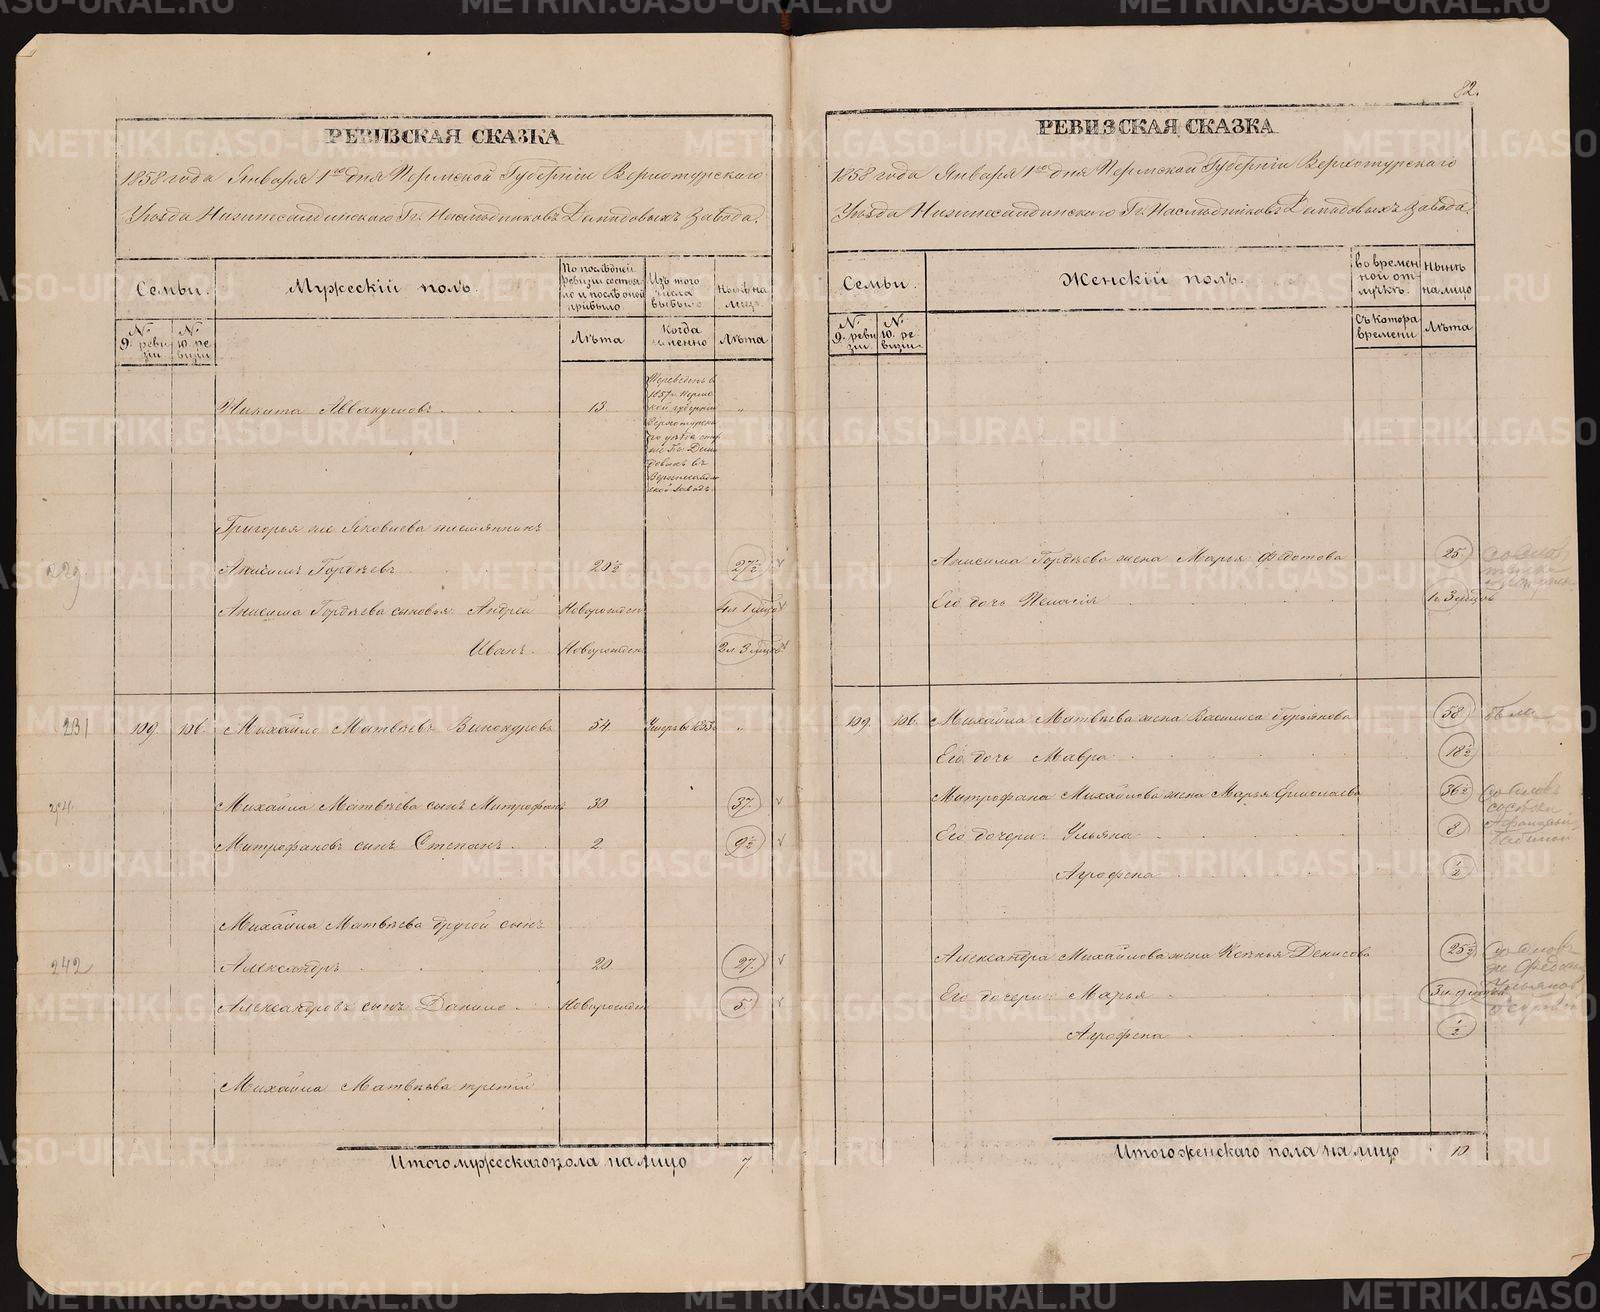 82.
РЕВИЗСКАЯ СКАЗКА
1858 года Января 1го дня Пермской Губерніи Верхотурскаго
Уѣзда Нижнесалдинскаго Гг. Наслѣдниковъ Демидовыхъ Завода.
Семьи.
Мужескій полъ.
По послѣдней ревизіи состояло и послѣ оной прибыло
Изъ того числа выбыло
Нынѣ на лицо
№ 9. ревизіи
№ 10. ревизіи
Лѣта
Когда именно
Лѣта
Никита Аввакумовъ 13 "
Переведенъ въ
1857 г. Пермс
кой губерніи
Верхотурска
го уѣзда
Гг. Деми
довыхъ въ
Верхнесалдин
ской заводъ.
Григорья же Яковлева племянникъ
229 Анисимъ Гордѣевъ 20½ 27½ v
Анисима Гордѣева сыновья: Андрей Новорожден 4 л 1 мѣс v
Иванъ Новорожден 2 л 3 мѣсцъ v
231 109. 106. Михайло Матвѣевъ Винокуровъ 54. Умеръ въ 1853 "
Михайла Матвѣева сынъ Митрофанъ 30 37. v
Митрофановъ сынъ Степанъ 2 9½ v
Михайла Матвѣева другой сынъ
242 Александръ 20 27. v
Александровъ сынъ Данило Новорожден 5 v
Михайла Матвѣева третій
Итого мужескаго пола на лицо 7
РЕВИЗСКАЯ СКАЗКА
1858 года Января 1го дня Пермской Губерніи Верхотурскаго
Уѣзда Нижнесалдинскаго Гг. Наслѣдниковъ Демидовыхъ Завода.
Семьи.
Женскій полъ.
Во временной отлучкѣ.
Нынѣ на лицо
№ 9. ревизіи
№ 10. ревизіи
Съ котора времени
Лѣта
Анисима Гордѣева жена Марья Федотова 25
Его дочь Пелагія 1 л 3 мѣсцъ
109. 106. Михайла Матвѣева жена Василиса Гурьянова 58
Его дочь Мавра 18½
Митрофана Михайлова жена Марья Ермолаева 36½
Его дочери: Ульяна 8
Аграфена ½
Александра Михайлова жена Ксенья Денисова 25½
Его дочери: Марья 3 л. 9 мѣсцъ
Аграфена ½
Итого женскаго пола на лицо 10
METRIKI.GASO-URAL.RU